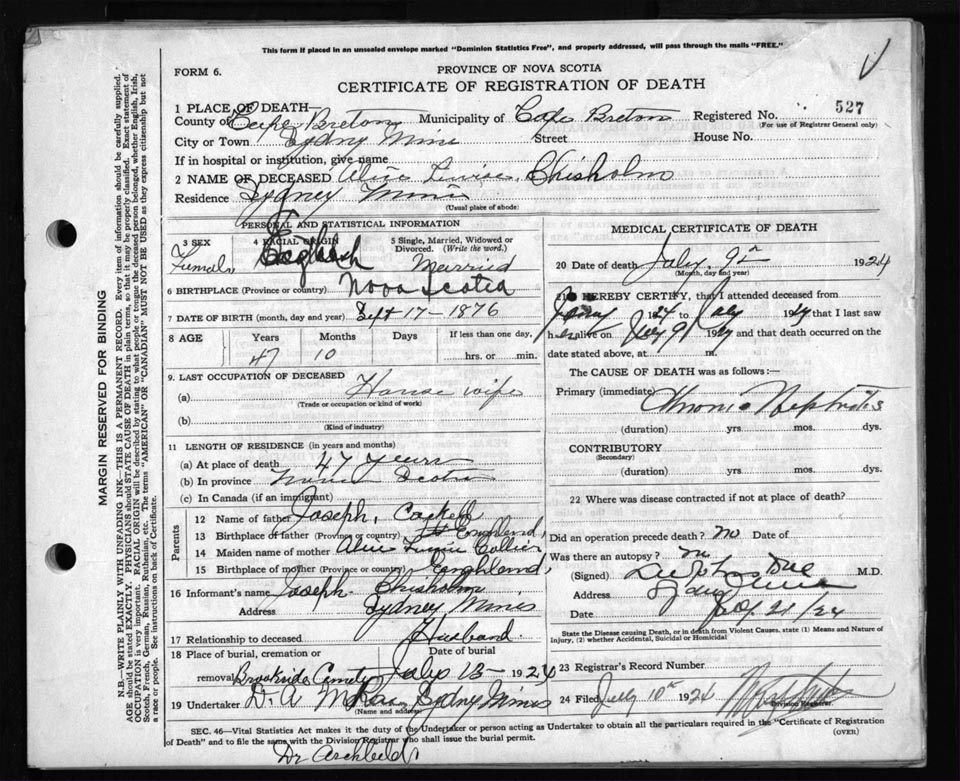 This form if placed in an unsealed envelope marked "Dominion Statistics Free", and properly addressed, will pass through the mails "FREE."
FORM 6.
PROVINCE OF NOVA SCOTIA
CERTIFICATE OF REGISTRATION OF DEATH
1 PLACE OF DEATH—
County of Cape Breton Municipality of Cape Breton Registered No. 527
(For use of Registrar General only)
City or Town Sydney Mines Street House No.
If in hospital or institution, give name
2 NAME OF DECEASED Alice Chisholm
Residence Sydney Mines
(Usual place of abode)
PERSONAL AND STATISTICAL INFORMATION
3 SEX 4 RACIAL ORIGIN 5 Single, Married, Widowed or Divorced. (Write the word.)
Female English Married
6 BIRTHPLACE (Province or country) Nova Scotia
7 DATE OF BIRTH (month, day and year) Sept 17 - 1876
8 AGE Years Months Days If less than one day,
47 10 hrs. or min.
9. LAST OCCUPATION OF DECEASED
(a) House wife
(Trade or occupation or kind of work)
(b)
(Kind of industry)
11 LENGTH OF RESIDENCE (in years and months)
(a) At place of death 47 years
(b) In province Nova Scotia
(c) In Canada (if an immigrant)
Parents
12 Name of father Joseph,
13 Birthplace of father (Province or country) England,
14 Maiden name of mother Alice Collier
15 Birthplace of mother (Province or country) England,
16 Informant's name Joseph Chisholm
Address Sydney Mines
17 Relationship to deceased Husband.
18 Place of burial, cremation or Date of burial
removal Brookside Cemetry July 13 - 1924
19 Undertaker D. A. Sydney Mines
(Name and address)
MEDICAL CERTIFICATE OF DEATH
20 Date of death July. 9th 1924
(Month, day and year)
21 I HEREBY CERTIFY, that I attended deceased from
1924 to July 1924 that I last saw
her alive on July 9 1924 and that death occurred on the
date stated above, at m.
The CAUSE OF DEATH was as follows:—
Primary (immediate) Chronic Nephritis
(duration) yrs. mos. dys.
CONTRIBUTORY
(Secondary)
(duration) yrs. mos. dys.
22 Where was disease contracted if not at place of death?
Did an operation precede death? no Date of
Was there an autopsy? no
(Signed) M.D.
Address Sydney Mines
Date 21/24
State the Disease causing Death, or in death from Violent Causes, state (1) Means and Nature of
Injury, (2) whether Accidental, Suicidal or Homicidal
23 Registrar's Record Number
24 Filed July 10th 1924
Division Registrar.
SEC. 46—Vital Statistics Act makes it the duty of the Undertaker or person acting as Undertaker to obtain all the particulars required in the "Certificate of Registration
of Death" and to file the same with the Division Registrar who shall issue the burial permit.
(OVER)
Dr Archibald.
MARGIN RESERVED FOR BINDING
N.B.—WRITE PLAINLY WITH UNFADING INK—THIS IS A PERMANENT RECORD. Every item of information should be carefully supplied.
AGE should be stated EXACTLY. PHYSICIANS should STATE CAUSE OF DEATH in plain terms, so that it may be properly classified. Exact statement of
OCCUPATION is very important. RACIAL ORIGIN will be described by stating to what people or tongue the deceased person belonged, whether English, Irish,
Scotch, French, German, Russian, Ruthenian, etc. The terms "AMERICAN" or "CANADIAN" MUST NOT BE USED as they express citizenship but not
a race or people. See instructions on back of Certificate.